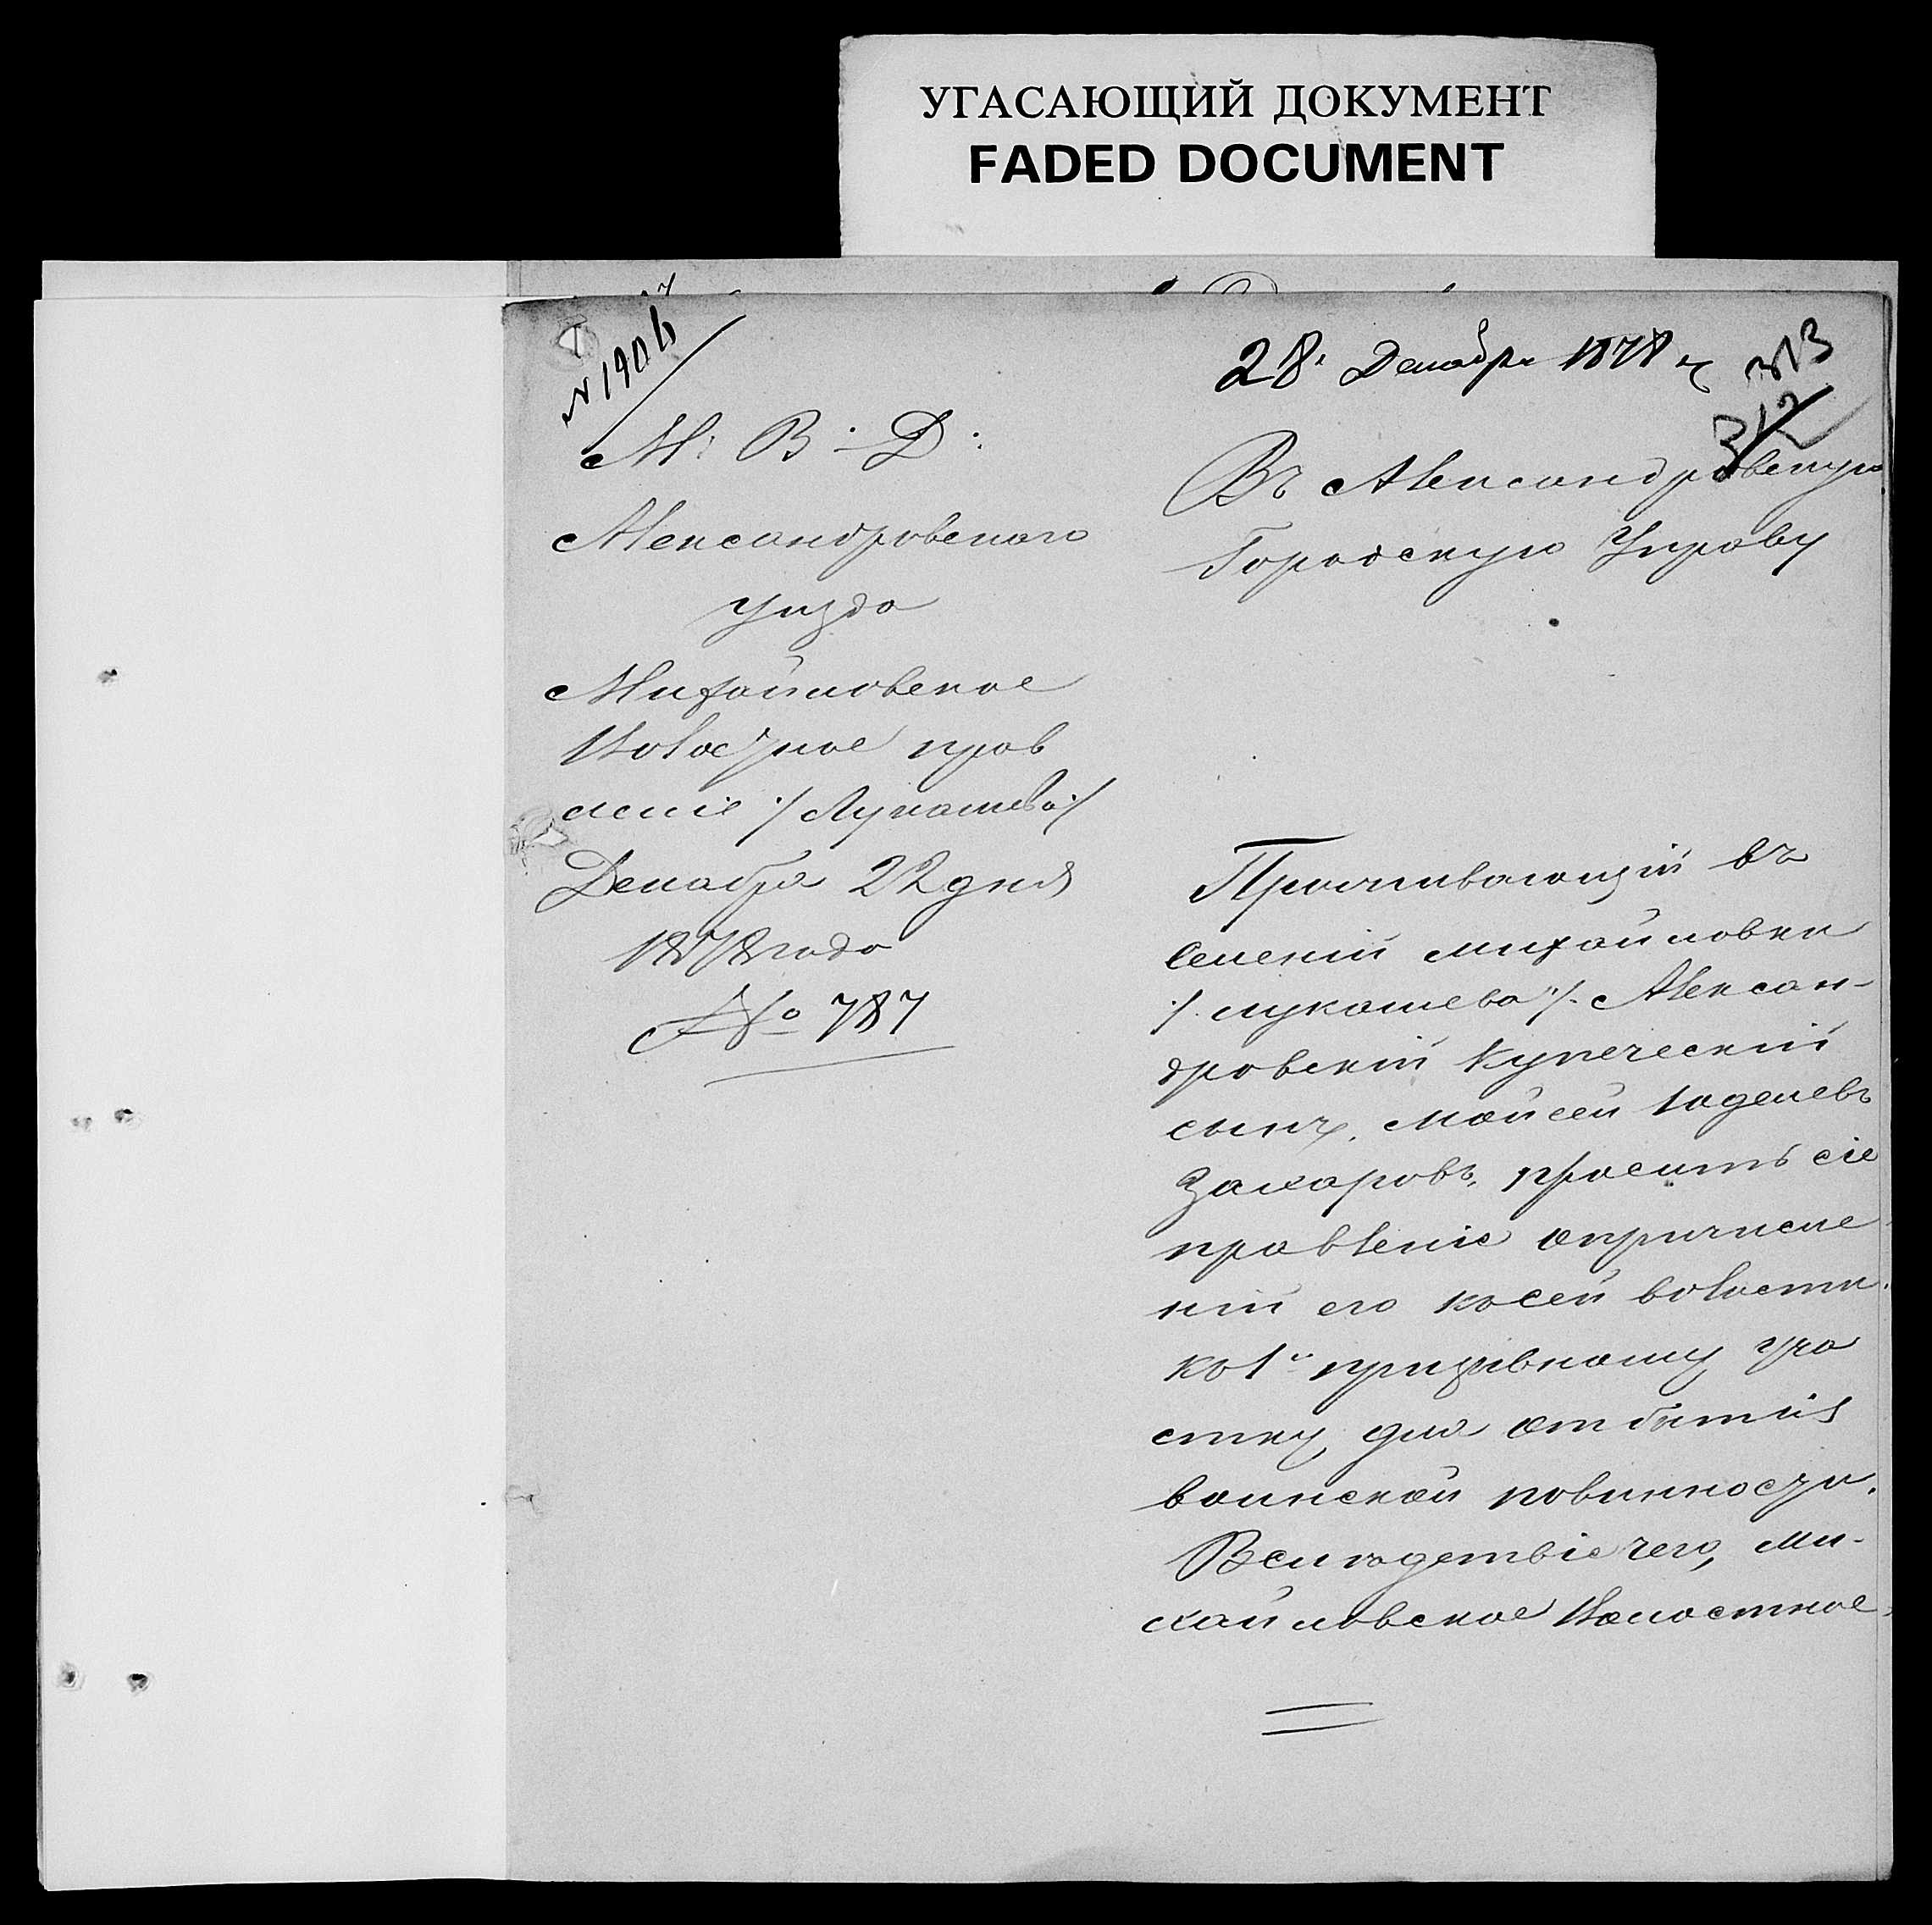 УГАСАЮЩИЙ ДОКУМЕНТ
FADED DOCUMENT
№ 1906
28 Декабря 1878 г
313
312
М. В. Д.
Александровскаго
уѣзда
Михайловское
Волостное прав
леніе /Лукашева/
Декабря 22 дня
1878 года
№ 787
Въ Александровскую
Городскую Управу
Проживающій въ
селеніи михайловки
/. лукашева ./. Алексан-
дровскій купеческій
сынъ, Мойсей Юделевъ
Захаровъ, проситъ сіе
правленіе опричисле
ніи его ксей волости
ко 1му призывному уча
стку, для отбытія
воинской повинности.
Вслѣдствіе чего, Ми-
хайловское Волостное